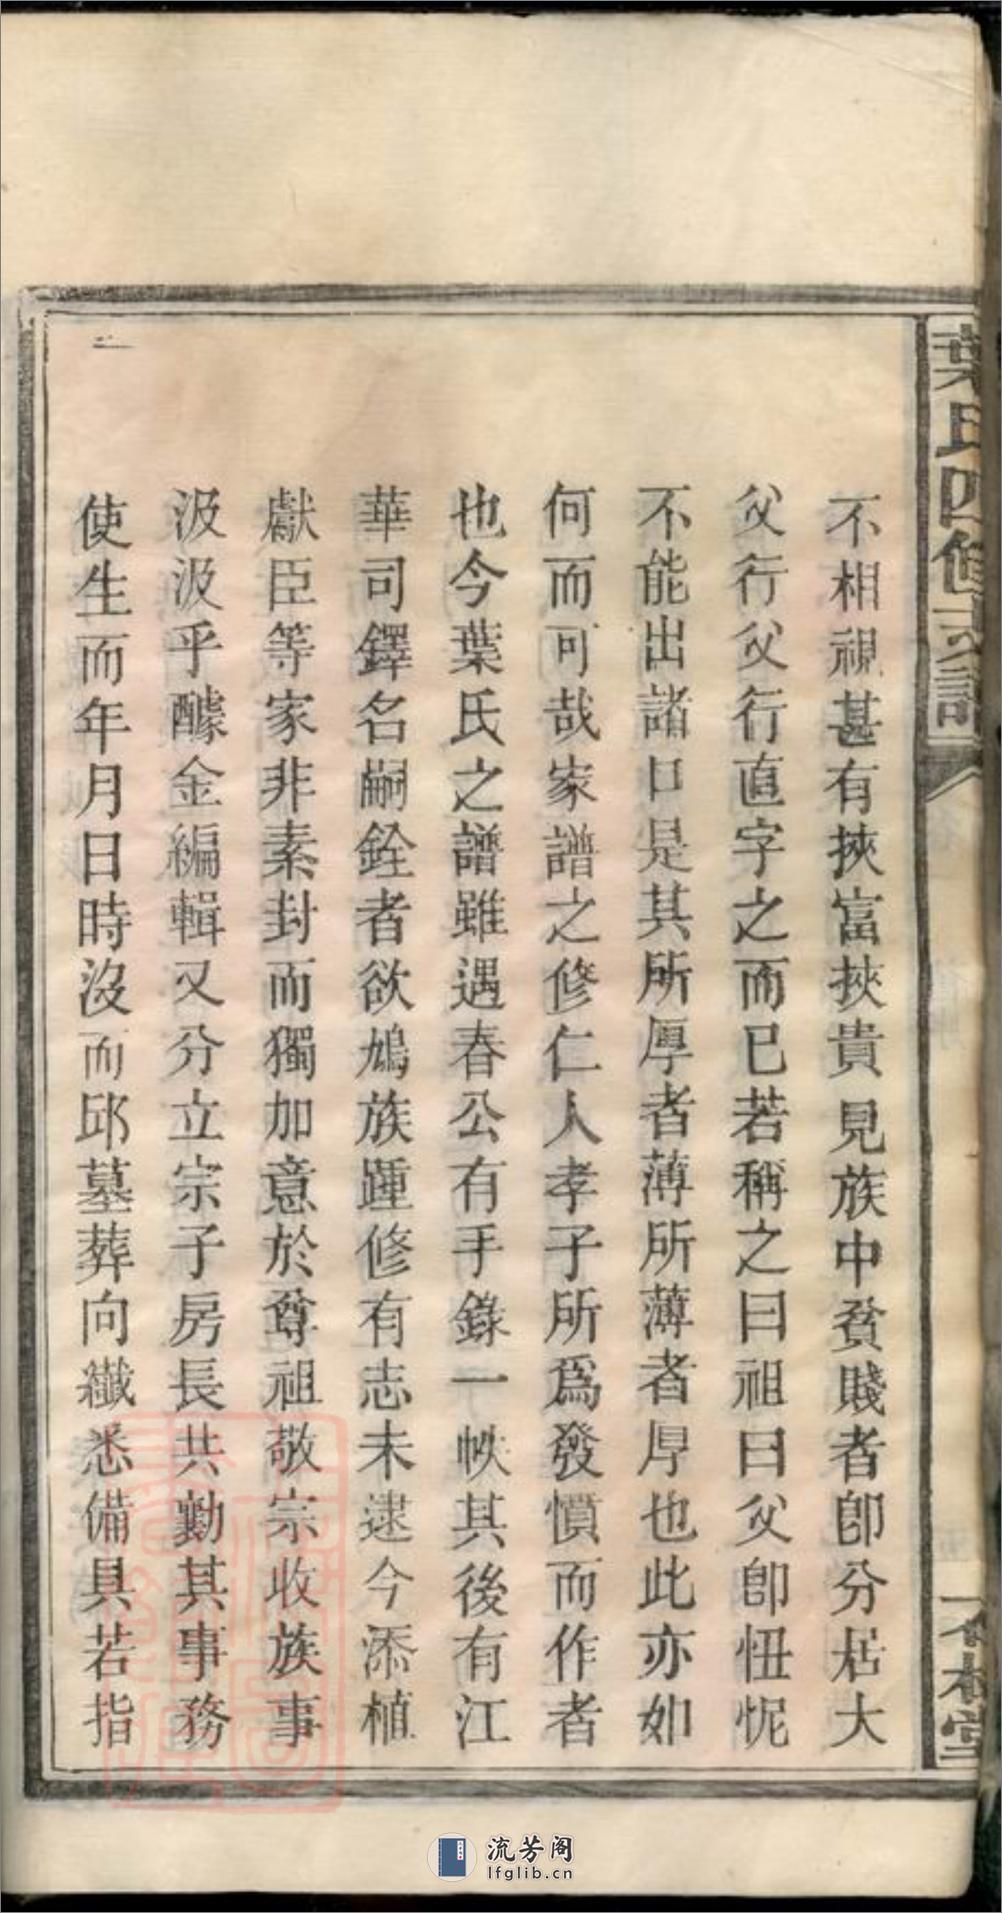 葉氏四修支譜
一本堂
不相視甚有挾富挾貴見族中貧賤者卽分居大
父行父行直字之而已若稱之曰祖曰父卽忸怩
不能出諸口是其所厚者薄所薄者厚也此亦如
何而可哉家譜之修仁人孝子所爲發憤而作者
也今葉氏之譜雖遇春公有手錄一帙其後有江
華司鐸名嗣銓者欲鳩族踵修有志未逮今添植
獻臣等家非素封而獨加意於尊祖敬宗收族事
汲汲乎醵金編輯又分立宗子房長共勷其事務
使生而年月日時沒而邱墓葬向纖悉備具若指
流芳阁
lfglib.cn